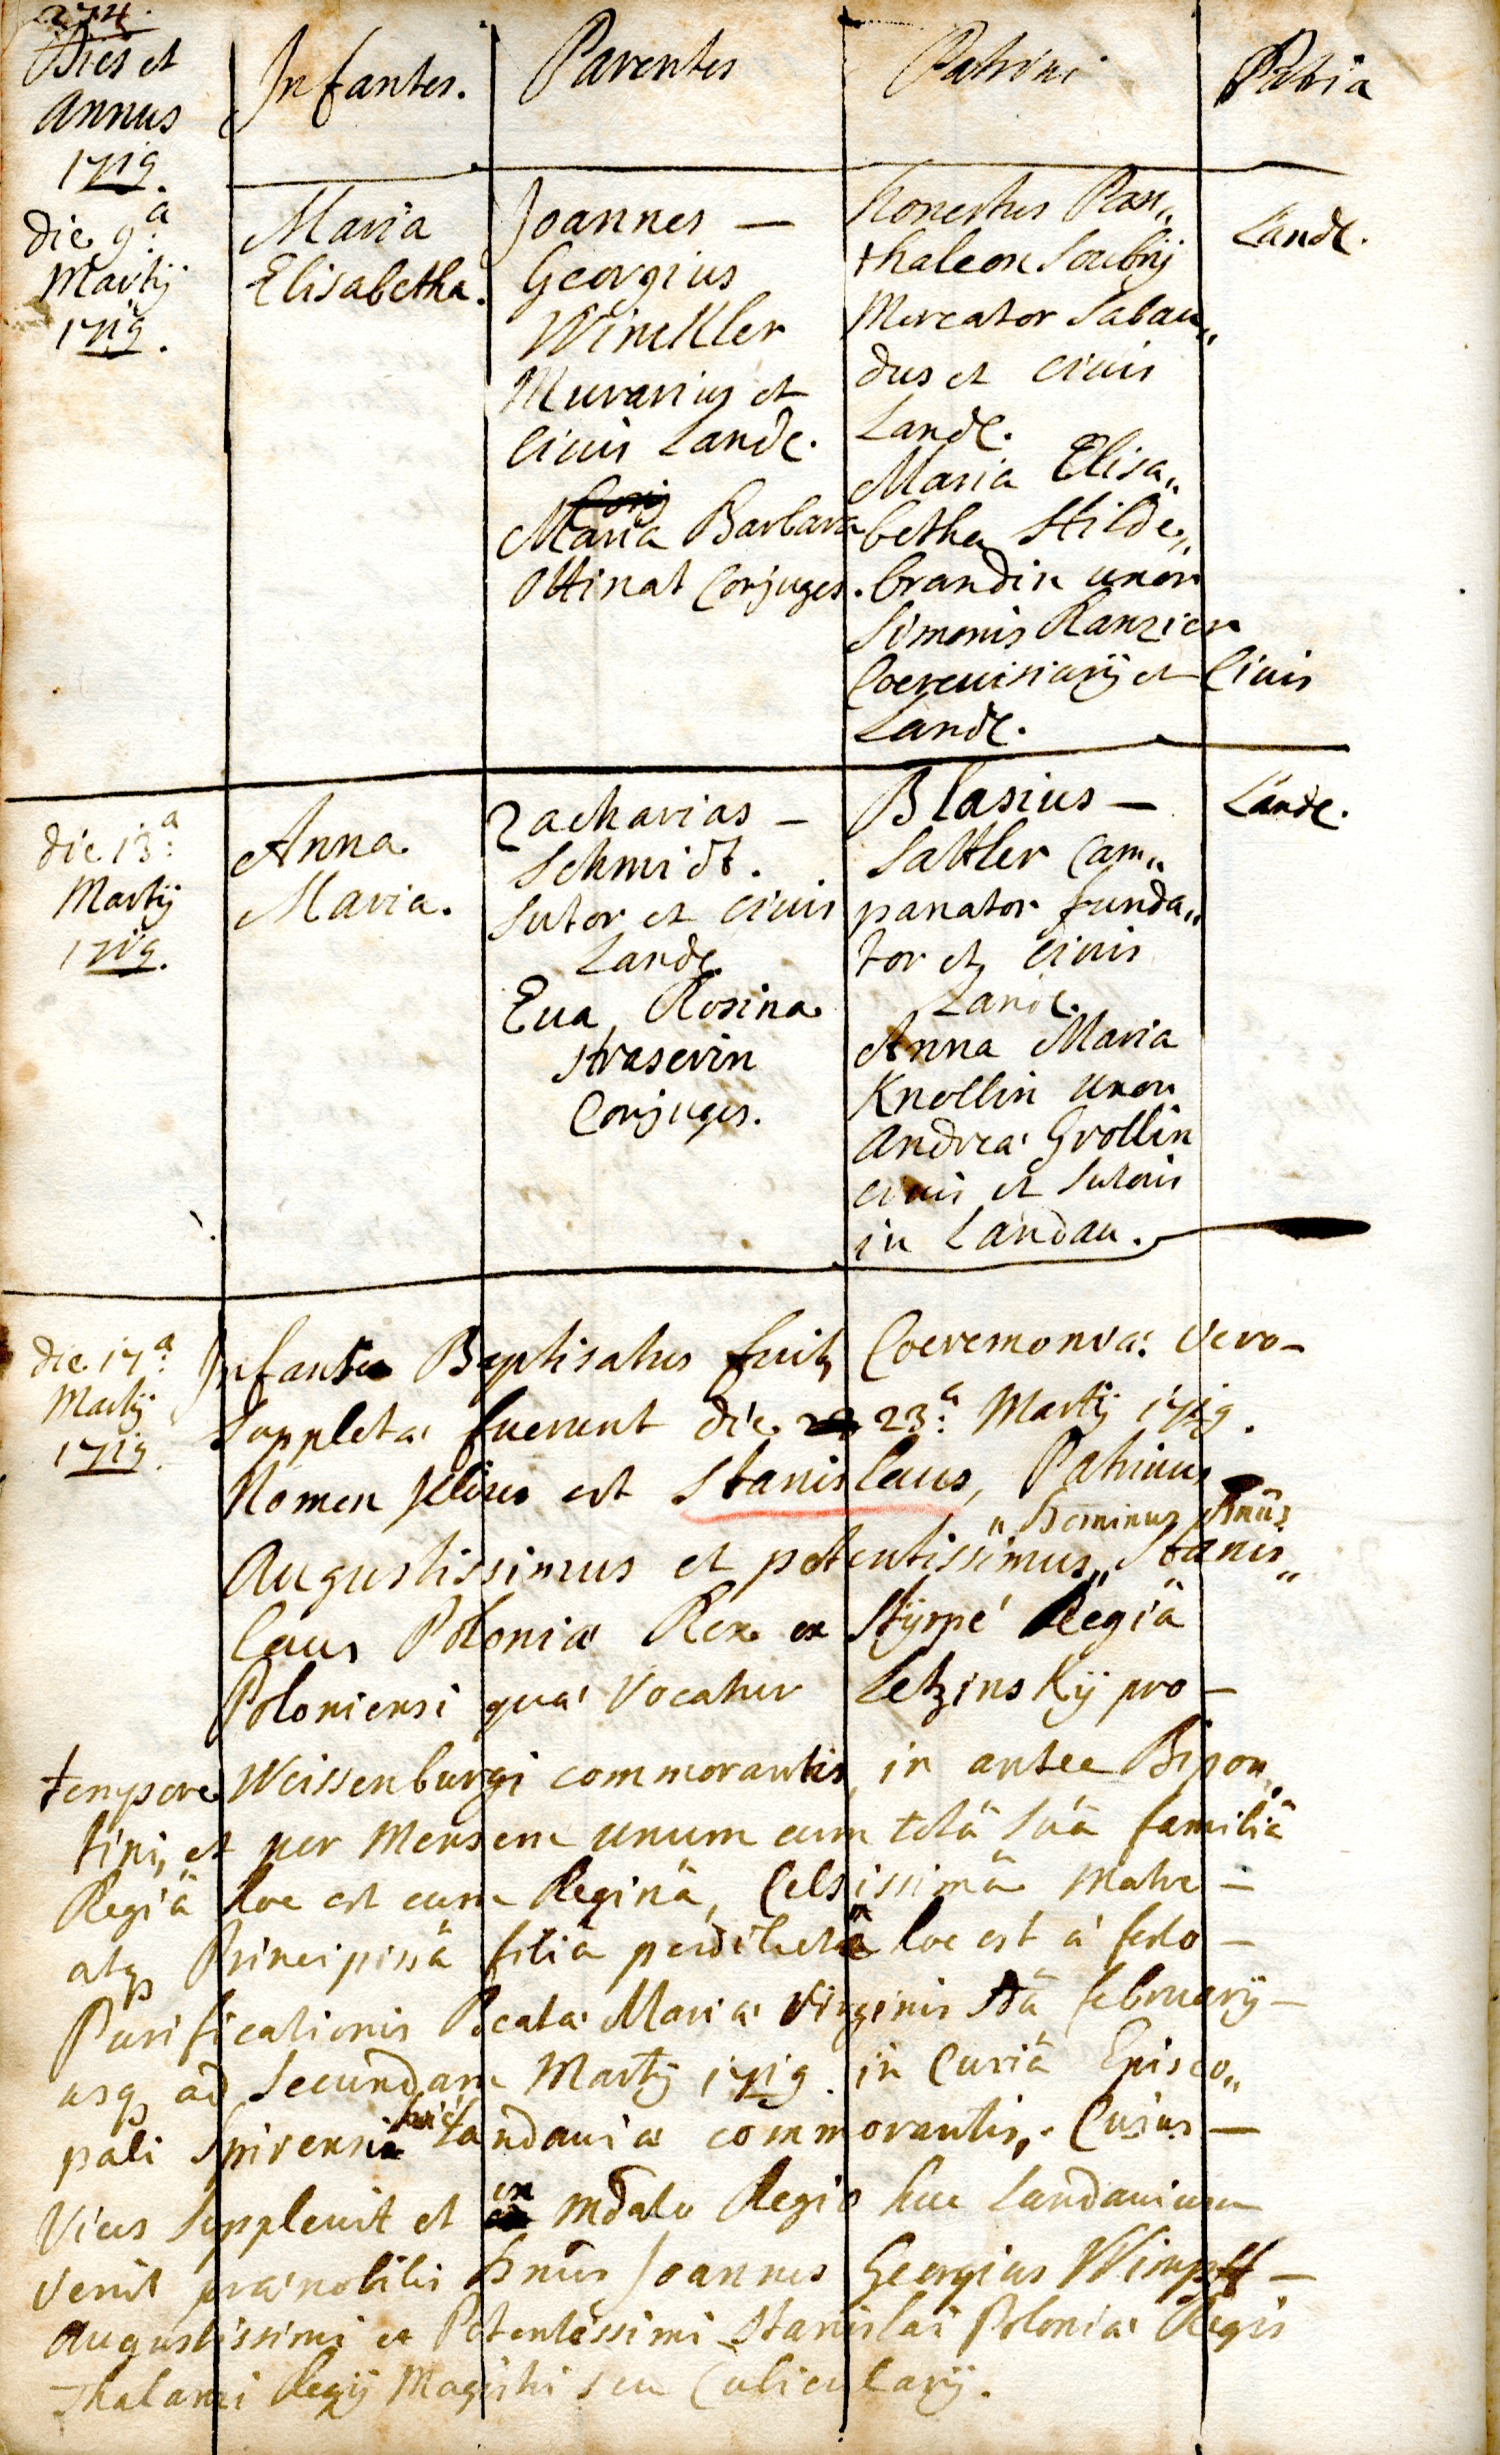 274.
Dies et
Annus
1719.
Infantes.
Parentes
Patrini
Patria
die 9.a
Martij
1719.
Maria
Elisabetha.
Joannes —
Georgius
Winckler
Murarius et
Civis Land.
Maria Barbara
Ottinat Conjuges.
Honestus Pan„
thaleon Soubrij
Mercator Sabau„
dus et Civis
Land.
Maria Elisa„
betha Hilde„
brandin uxor
Simonis Ranzier
Coerevisiarij et Civis
Land.
Land.
die 13.a
Martij
1719.
Anna
Maria.
Zacharias —
Schmidt.
Sutor et Civis
Land.
Eva Rosina
Straserin
Conjuges.
Blasius —
Sattler Cam„
panator funda„
tor et Civis
Land.
Anna Maria
Knollin uxor
Andreæ Grollin
Civis et Sutoris
in Landau.
Land.
die 17.a
Martij
1719.
Infans Baptisatus fuit, Coeremoniæ vero —
Suppletæ fuerunt die 23.a Martij 1719.
Nomen illius est Stanislaus, Patrinus
Augustissimus et potentissimus„ „Dominus Dnus Stanis„
laus Poloniæ Rex ex Styrpe Regiâ
Poloniensi quæ vocatur Letzinskij pro —
tempore Weissenburgi commorantis, in antea Bipon„
tini, et per Mensem unum cum totâ suâ familiâ
Regiâ hoc est cum Reginâ, Celsissimâ Matre —
atq Principissâ filiâ perdilectâ hoc est à festo —
Purificationis Beatæ Mariæ Virginis 2dâ februarij —
usq ad Secundam Martij 1719. in Curiâ Episco„
pali Spirensi hic Landaviæ commorantis. Cujus —
Vices Supplevit et ex mdato Regio huc Landavium
venit prænobilis Dnus Joannes Georgius Wimpff —
Augustissimi et Potentissimi Stanislai Poloniæ Regis
Thalami Regij Magistri seu Cubicularij.